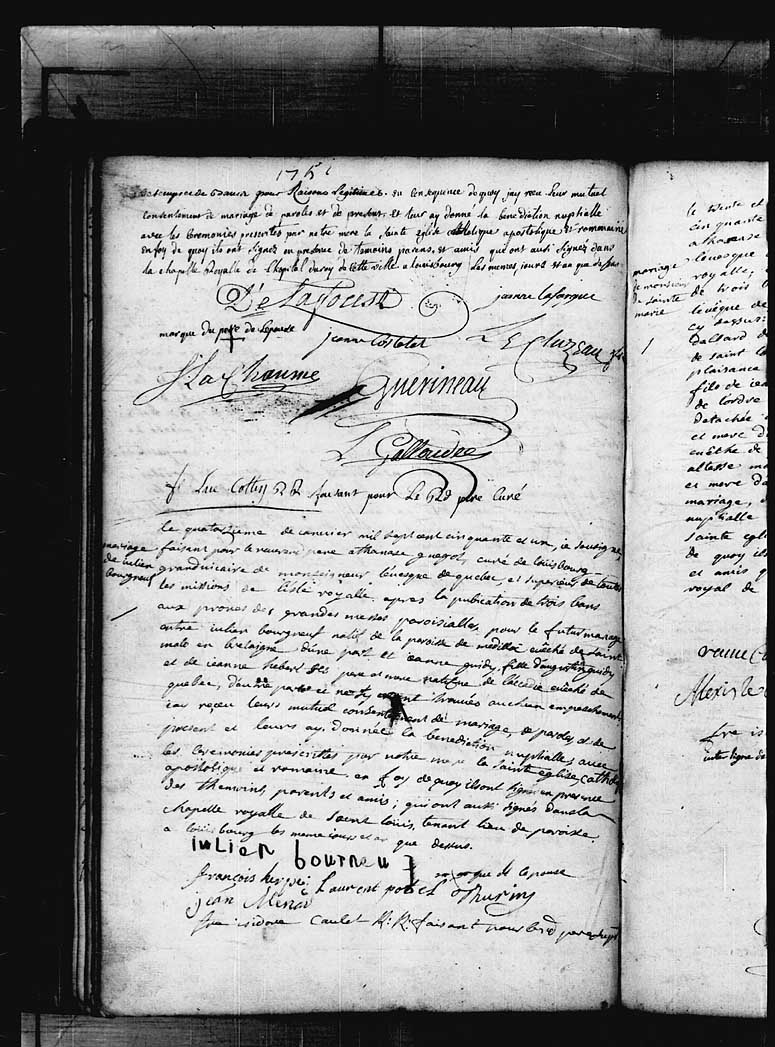 1751
pour Raisons Legitimes. en Consequence de quoy jay recu leur mutuel
Consentement de mariage de paroles et de present. Et leur ay donné la benediction nuptialle
avec les Ceremonies prescrites par notre mere la Sainte Eglise Catholique apostolique et rommaine
En foy de quoy ils ont signez en presence de temoins parens et amis qui ont aussi signez dans
la chapelle Royalle de l'hopital du roy de cette ville a louisbourg Les memes jour et an que dessus
jeanne lafargue
marque du pere de Lepouse
LE Cluzeau
S La Chaume
Guerineau
f. Luc Cottin R R faisant pour Le R d pere Curé
mariage
de iulien
bourgneuf
le quatorzieme de ianvier mil sept cent cinquante et un, ie soussigné,
faisant pour le reverend pere athanase guegot, curé de louisbourg
grand vicaire de monseigneur l'evesque de quebec, et superieur de toutes
les missions de l'isle royalle, apres la publication de trois bans
aux prones des grandes messes paroisialles, pour le futur mariage
entre iulien bourgneuf natif de la paroisse de evêché de saint
malo en bretaigne d'une part et ieanne guidry, fille d'augustin guidry
et de ieanne hebert ses pere et mere native de l'accadie evêché de
quebec, d'autre part et ne s'y etant trouvés auchun empeschement,
iay receu leurs mutuel consentement de mariage, de paroles et de
present et leurs ay donnée la benediction nuptialle, avec
les ceremonies prescrittes par notre mere la sainte eglise, catholique
apostolique et romaine, en foy de quoy ils ont signés en presence
des themoins, parents et amis; qui ont aussi signés dans la
chapelle royalle de saint louis, tenant lieu de paroisse
a louisbourg les meme iour et an que dessus.
iulien bourneu
marque de lepouse
françois
Laurent
jean
frere isidore Caulet R. R. faisant pour le Rd pere
mariage
de monsieur
de sainte
marie
le trente et
cinquante
athanase
l'evesque
royalle,
de trois b
l'evêque de
cy dessus
de saint l
plaisance
fils de iea
de l'ordre
detachée
et mere d
evêché de
et mere da
mariage,
nuptialle
sainte egl
de quoy ils
et amis q
royal de
fre is